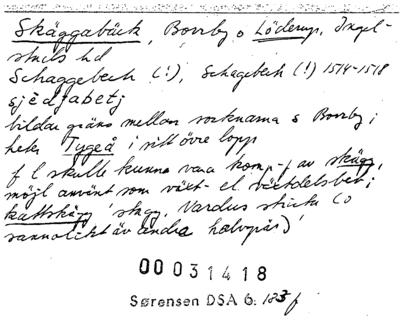 Skäggabäck, Borrby o Löderup, Ingel-
stads hd
Schaggebeck (!), Schagebeck (!) 1514-1518
bildar gräns mellan socknarna s Borrby;
heter Tygeå i sitt övre lopp
f l skulle kunna vara komp-f av skägg,
möjl använt som växt- el växtdelsbet;
kattskägg 'stagg, Nardus stricta' (o
sannolikt äv andra halvgräs)
00031418
Sørensen DSA 6: 183 f